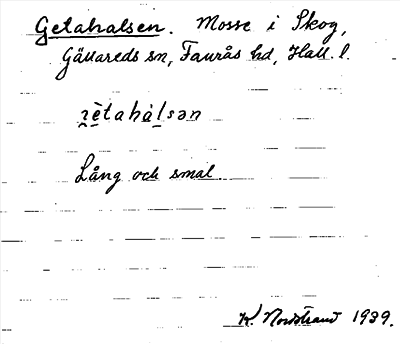 Getahalsen. Mosse i Skog,
Gällareds sn, Faurås hd, Hall. l.
Lång och smal
K. Nordstrand 1939.